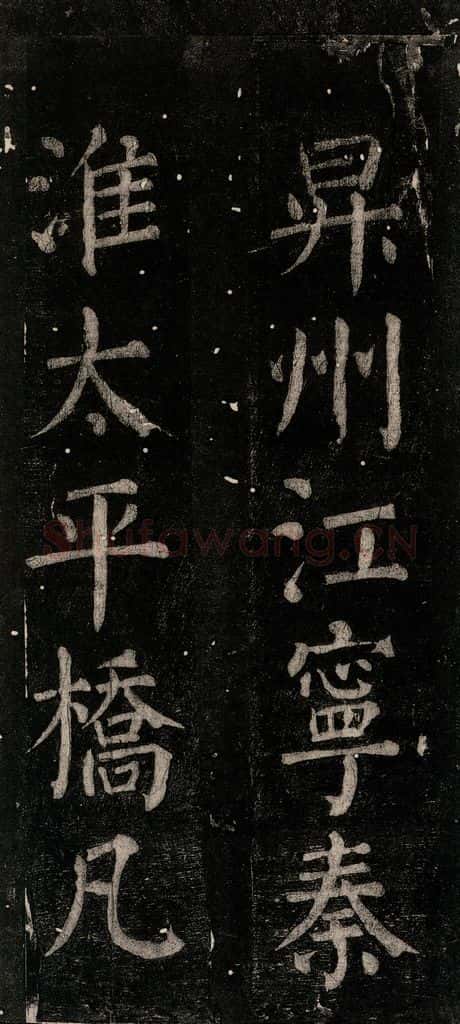 昇州江寧秦
淮太平橋凡
Shufawang.CN